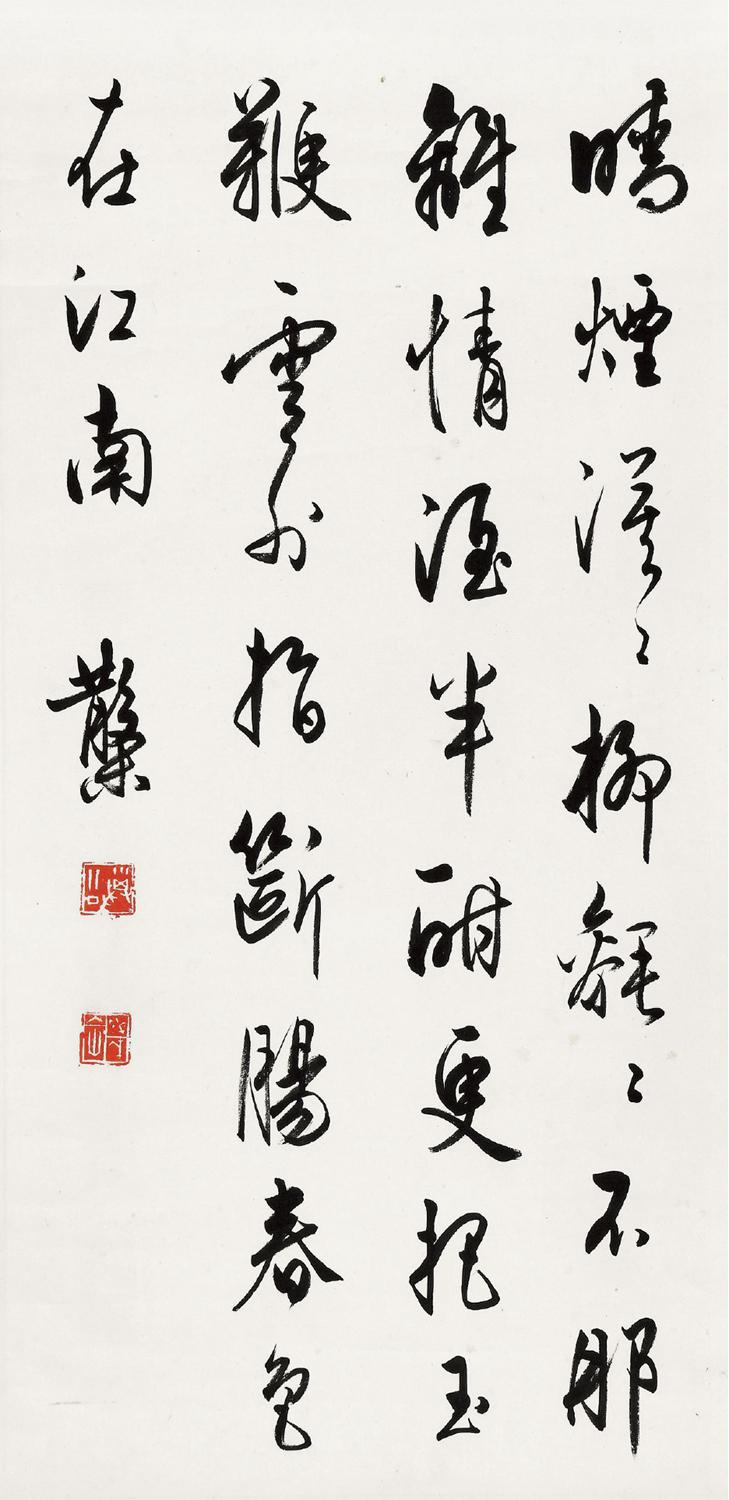 晴煙漠々柳毿々不那
離情酒半酣更把玉
鞭雲外指斷腸春色
在江南